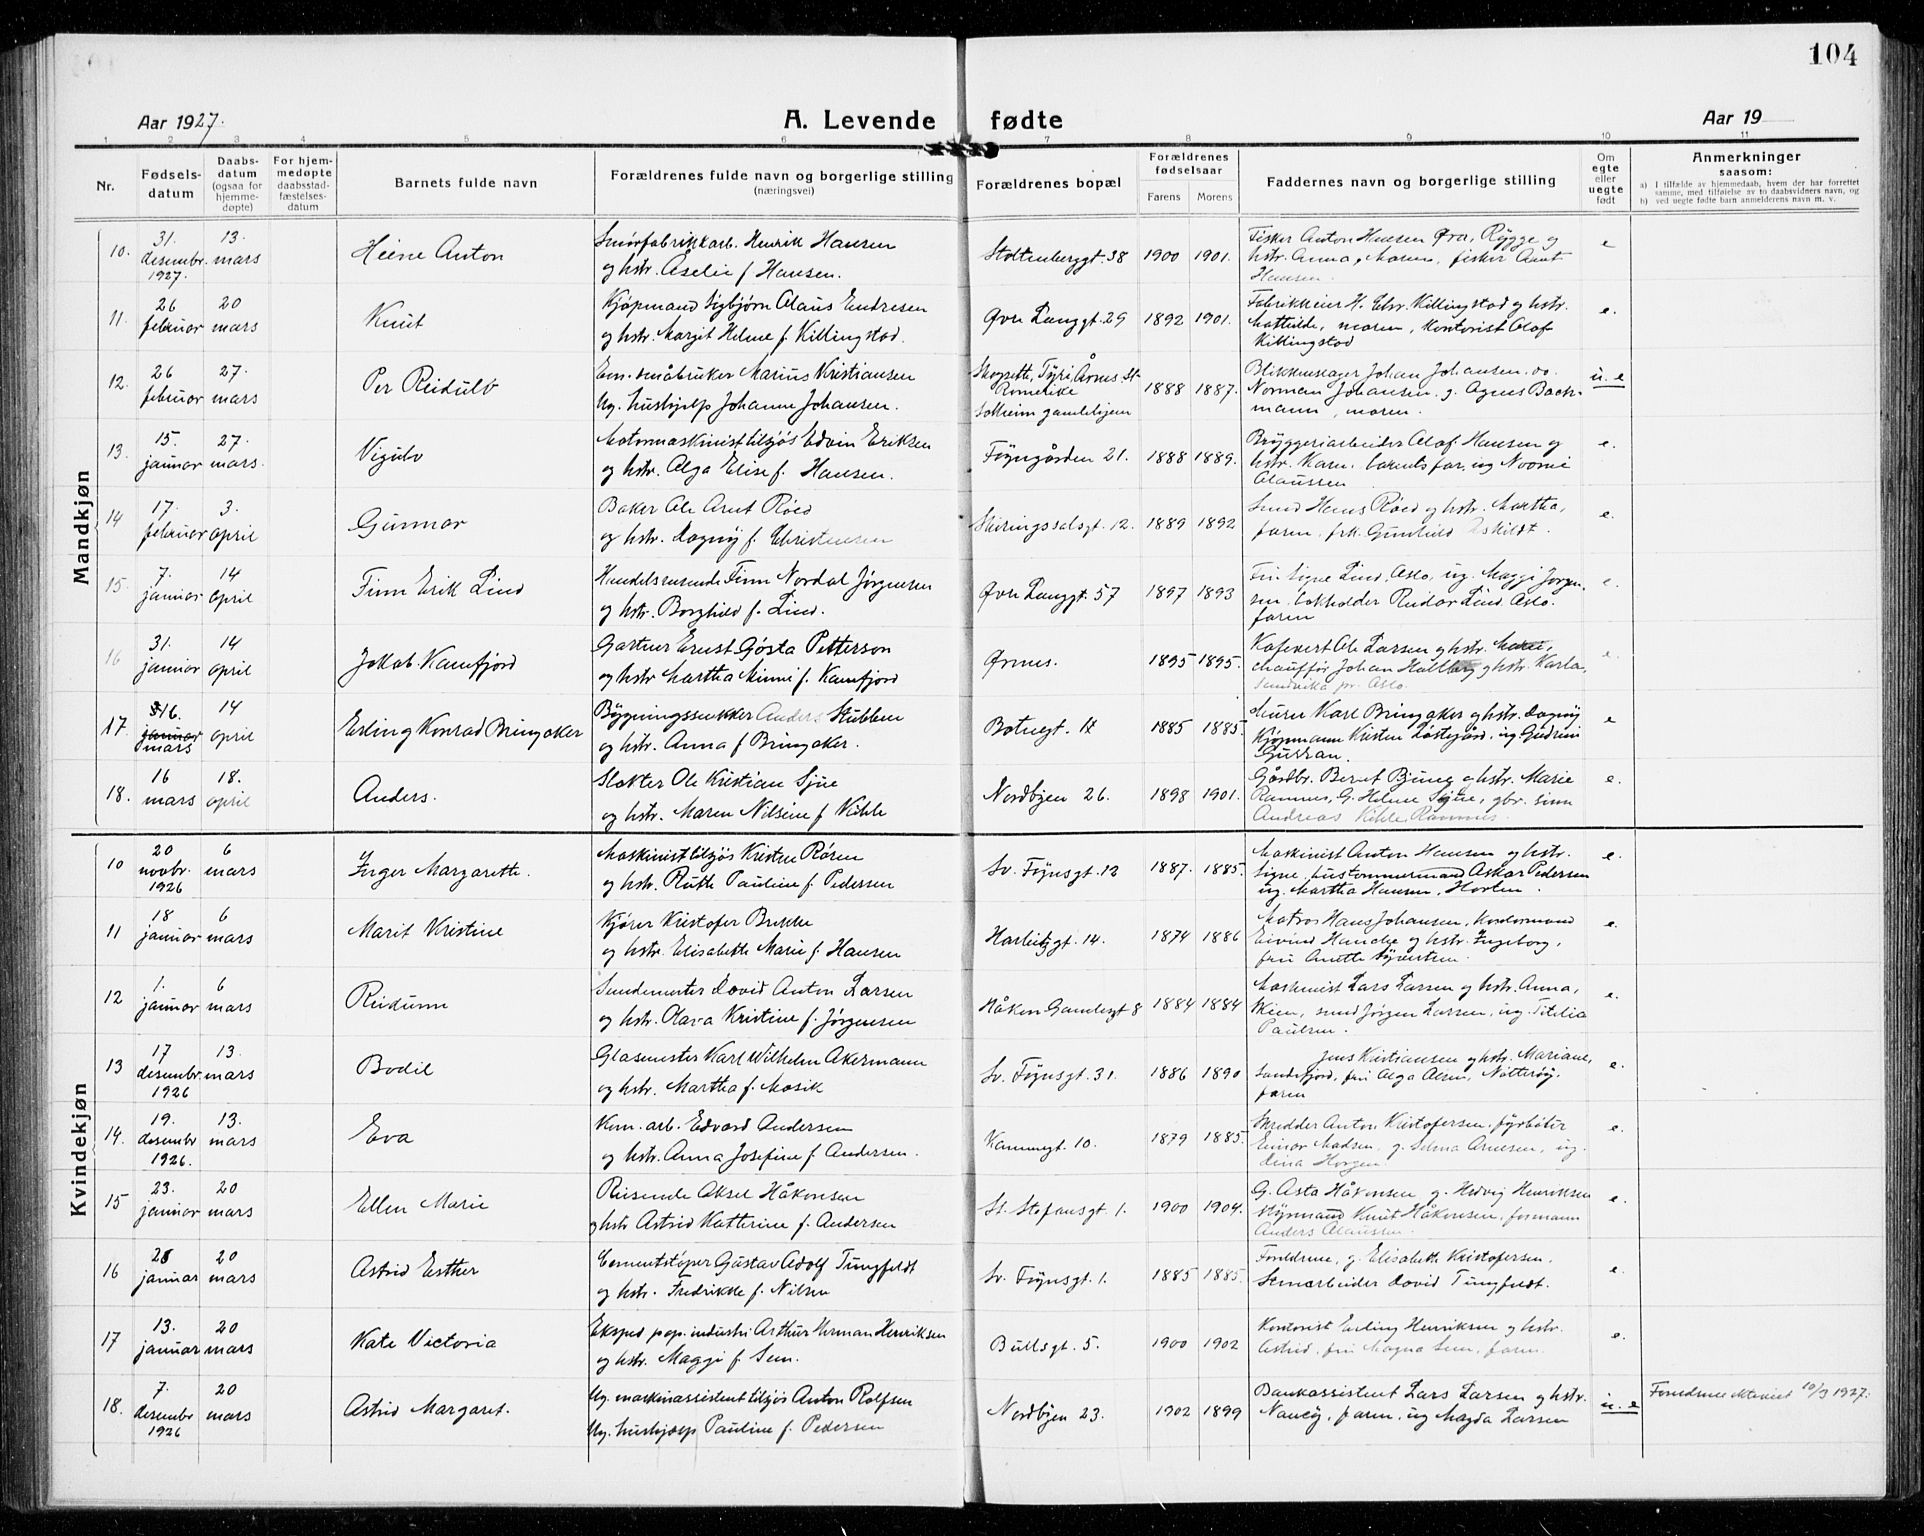 104
Aar 1927.
A. Levende fødte
Aar 19
1 2 3 4 5 6 7 8 9 10 11
Nr.
Fødsels-
datum
Daabs-
datum
(ogsaa for
hjemme-
døpte)
For hjem-
medøpte
daabsstad-
fæstelses-
datum
Barnets fulde navn
Forældrenes fulde navn og borgerlige stilling
(næringsvei)
Forældrenes bopæl
Forældrenes
fødselsaar
Farens Morens
Faddernes navn og borgerlige stilling
Om
egte
eller
uegte
født
Anmerkninger
saasom:
a) I tilfælde av hjemmedaab, hvem der har forrettet
samme, med tilføielse av to daabsvidners navn, og
b) ved uegte fødte barn anmelderens navn m. v.
Mandkjøn
10. 31. desembr. 1927. 13. mars Heine Anton
Smørfabrikkarb. Henrik Hansen
og hstr. Aselie f. Hansen.
Stoltenberggt. 38 1900 1901.
Fisker Anton Hansen Øra, Rygge og
hstr. Anna, Moren, fisker Arnt
Hansen. e
11. 26 februar 20 mars Knut
Kjøpmand Sigbjørn Olaus Endresen
og hstr. Margit Helene f. Killingstad.
Øvre Langgt. 29 1892 1901.
Fabrikkeier H. Chr. Killingstad og hstr.
Mathilde, moren, kontorist Olaf
Killingstad e.
12. 26 februar 27. mars Per Reidulv
Em. småbruker Marius Kristiansen
Ug. hushjelp Johanne Johansen.
Årnes. St.
Romerike
Solheim gamlehjem 1888 1887.
Blikkenslager Johan Johansen, do.
Norman Johansen, g. Agnes Back-
mann, moren. u. e
13. 15. januar 27. mars. Vigulv
Motormaskinist tilsjøs Edvin Eriksen
og hstr. Olga Elise f. Hansen.
Føyngården 21. 1888 1889.
Bryggeriarbeider Olaf Hansen og
hstr. Karn, barnets far, ug Noomi
Olaussen e.
14 17. februar 3. april Gunnar
Baker Ole Arnt Røed
og hstr. Dagny f. Christensen
Skiringssalsgt. 12. 1889 1892
Smed Hans Røed og hstr. Martha,
faren, frk. Gunhild Askildt. e.
15. 7. januar 14 april Finn Erik Lind
Handelsreisende Finn Nordal Jørgensen
og hstr. Borghild f. Lind.
Øvre Langgt. 57 1897 1893
Fru Signe Lind, Oslo, ug. Maggi Jørgen-
sen, bokholder Reidar Lind, Oslo.
faren e.
16 31. januar 14 april Jakob Kamfjord
Gartner Ernst Gösta Petterson
og hstr Martha Minni f. Kamfjord
Ørsnes. 1895 1895.
Kafevert Ole Larsen og hstr. Marie,
chauffør Johan Hallberg og hstr. Karla,
Sandvika pr. Oslo. e.
17. 16. januar mars 14 april Erling Konrad Bringaker
Bygningssnekker Anders Stubben
og hstr. Anna f Bringaker.
Botnegt. 12 1885 1885.
Murer Karl Bringaker og hstr. Dagny
Kjøpmann Kristen Løstegård, ug Gudrun
e
18. 16 mars 18. april Anders.
Slakter Ole Kristian Sjue
og hstr. Maren Nilsine f Kihle
Nordbyen 26. 1898 1901.
Gårdbr. Bernt Bjune og hstr. Marie
Ramnes, G. Helene Sjue, gbr. sønn
Andreas Kihle, Ramnes. e.
Kvindekjøn
10 20 novbr. 1926 6 mars Inger Margarethe.
Maskinist tilsjøs Kristen Røren
og hstr. Ruth Pauline f. Pedersen
Sv. Føynsgt. 12 1887. 1885.
Maskinist Anton Hansen og hstr.
Signe, hustømmermand Oskar Pedersen
ug. Martha Hansen, Horten. e.
11 18 januar 6 mars Marit Kristine
Kjører Kristofer Brekke
og hstr. Elisabeth Marie f. Hansen
Harbitzgt. 14. 1874 1886
Matros Hans Johansen, kordermand
Eivind Hanche og hstr. Ingeborg,
fru Anette Syvertsen. e.
12 1. januar 6 mars Reidunn
Smedmester David Anton Larsen
og hstr. Olava Kristine f. Jørgensen
Håken Gamlesgt 8 1884 1884
Maskinist Lars Larsen og hstr. Anna,
Skien, smed Jørgen Larsen, ug. Titilia
Paulsen. e.
13 17 desembr 1926 13. mars Bodil
Glasmester Karl Wilhelm Akermann
og hstr. Martha f. Mosik
Sv. Føynsgt. 31. 1886 1890
Jens Kristiansen og hstr. Mariane,
Sandefjord, fru Olga Olsen, Nøtterøy,
faren e.
14. 19. desembr 1926. 13. mars Eva
Kom. arb. Edvard Andersen
og hstr. Anna Josefine f. Andersen.
Kammegt. 10. 1879 1885.
Skredder Anton Kristofersen, fyrbøter
Einar Madsen, g. Selma Arnesen, ug.
Dina Horgen. e.
15 23. januar 20 mars Ellen Marie
Reisende Aksel Håkonsen
og hstr Astrid Katherine f. Andersen
St. Stefansgt. 1. 1900 1904.
G. Asta Håkonsen, g. Hedvig Henriksen
styrmand Knut Håkonsen, formann
Anders Olaussen. e.
16 26 januar 20 mars Astrid Esther
Cementstøper Gustav Adolf Tungfeldt
og hstr. Fredrikke f. Nilsen
Sv. Føynsgt. 1. 1885 1885.
Foreldrene, g. Elisabeth Kristofersen,
Stenarbeider David Tungfeldt. e.
17 13. januar 20 mars Kate Victoria
Eksped. pap. industri Arthur Herman Henriksen
og hstr. Maggi f. Sem.
Bullsgt. 5. 1900 1902
Kontorist Erling Henriksen og hstr.
Astrid, fru Magna Sem, faren. e.
18. 7. desembr 1926 20 mars Astrid Margaret.
Ug. maskinassistent tilsjøs Anton Rolfsen
Ug. hushjelp Pauline f. Pedersen
Nordbyen 23. 1902 1899
Bankassistent Lars Larsen og hstr.
Nancy, faren, ug Magda Larsen u. e
Foreldrene ekteviet 10/3 1927.